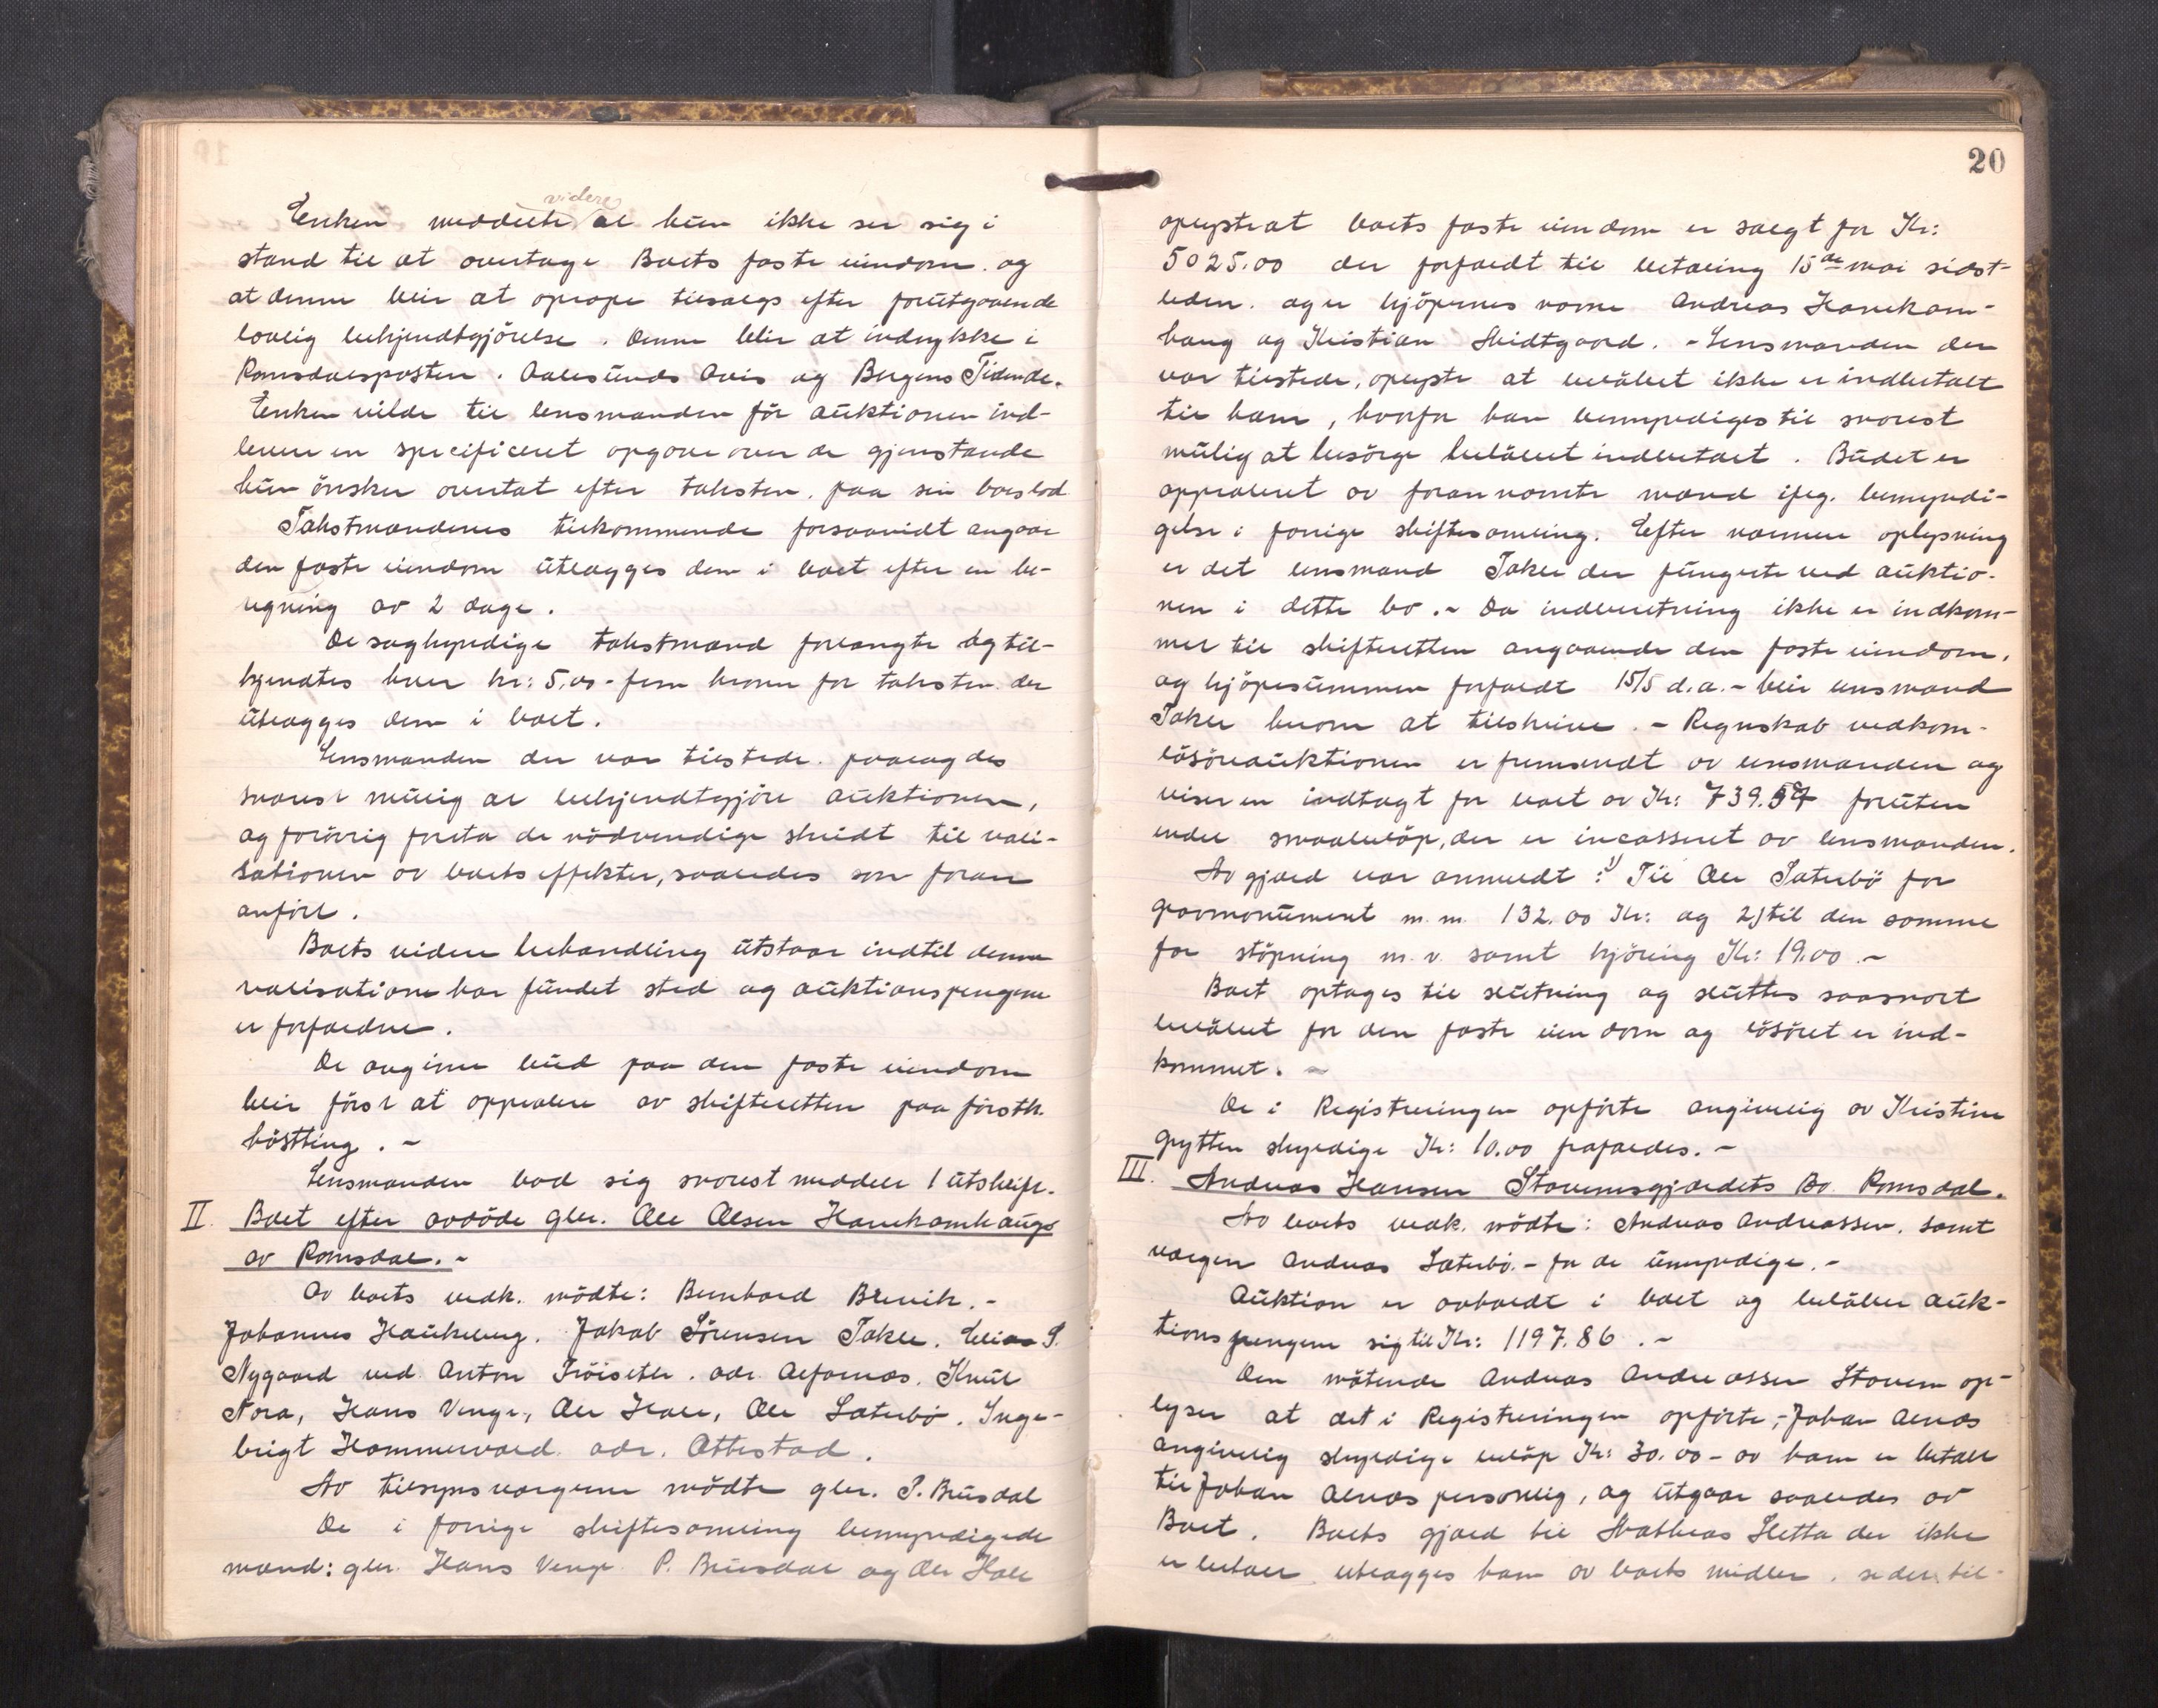 videre
Enken meddelte at hun ikke ser sig i
stand til at overtage Boets faste eiendom og
at denne blir at oprope tilsalgs efter forutgaaende
lovlig bekjendtgjörelse. Denne blir at indrykke i
Romsdalsposten. Aalesunds Avis og Bergens Tidende.
Enken vilde til lensmanden för auktionen ind-
levere en specificeret opgave over de gjenstande
hun önsker overtat efter taksten, paa sin boslod
Takstmændenes tilkommende forsaavidt angaar
den faste eiendom utlægges dem i boet efter en be-
regning av 2 dage.
De sagkyndige takstmænd forlangte og til-
kjendtes hver kr: 5,00 - fem kroner for taksten der
utlægges dem i boet.
Lensmanden der var tilstede paalagdes
snarest mulig at bekjendtgjöre auktionen,
og forövrig foreta de nödvendige skridt til reali-
sationen av boets effekter, saaledes som foran
anfört.
Boets videre behandling utstaar indtil denne
realisation har fundet sted og auktionspengene
er forfaldne.
De avgivne bud paa den faste eiendom
blir först at approbere av skifteretten paa förstk.
höstting. -
Lensmanden bad sig snarest meddelt 1 utskrift.
II. Boet efter avdöde gbr. Ole Olsen Hanekamhaugs
av Romsdal. -
Av boets vedk. mödte: Bernhard Brevik. -
Johannes Haukeberg. Jakob Sörensen Tokle. Elias S.
Nygaard ved Anton Tröiseth. adr. Alfarnæs. Knut
Nora, Hans Venge, Ole Hole, Ole Sæterbö. Inge-
brigt Hammervold adr. Ottestad.
Av tilsynsvergerne mödte gbr. P. Brusdal
De i forrige skiftesamling bemyndigede
mænd: gbr. Hans Venge P. Brusdal og Ole Hole
20
oplyste at boets faste eiendom er solgt for Kr:
5025.00 der forfaldt til betaling 15de mai sidst-
leden. og er kjöpernes navne Andreas Hanekam-
haug og Kristian Skidtgaard. - Lensmanden der
var tilstede, oplyste at belöbet ikke er indbetalt
til ham, hvorfor han bemyndiges til snarest
mulig at besörge belöbet indbetalt. Budet er
approberet av forannævnte mænd ifölg. bemyndi-
gelse i forrige skiftesamling. Efter nærmere oplysning
er det lensmand Tokle der fungerte ved auktio-
nen i dette bo. - Da indberetning ikke er indkom-
met til skifteretten angaaende den faste eiendom,
og kjöpesummen forfaldt 15/5 d.a. - blir lensmand
Tokle herom at tilskrive. - Regnskab vedkom-
lösöreauktionen er fremsendt av lensmanden og
viser en indtægt for boet av Kr: 739.57 foruten
endel smaabelöp, der er incasseret av lensmanden.
Av gjæld var anmeldt: 1) Til Ole Sæterbö for
gravmonument m.m. 132.00 Kr: og 2) til den samme
for stöpning m.v. samt kjöring Kr: 19.00. -
Boet optages til slutning og sluttes saasnart
belöbet for den faste eiendom og lösöret er ind-
kommet. -
De i Registreringen opförte angivelig av Kristine
Grytten skyldige Kr: 10.00 frafaldes. -
III. Andreas Hansen Stavemsgjærdets Bo. Romsdal.
Av boets vedk. mödte: Andreas Andreassen, samt
vergen Andreas Sæterbö. - for de umyndige. -
Auktion er avholdt i boet og belöber auk-
tionspengene sig til Kr: 1197.86. -
Den mötende Andreas Andreassen Stavem op-
lyser at det i Registreringen opförte, - Johan Alnæs
angivelig skyldige belöp Kr: 30.00 - av ham er betalt
til Johan Alnæs personlig, og utgaar saaledes av
Boet. Boets gjæld til Mathias Sletta der ikke
er betalt utlægges ham av boets midler. se den til-